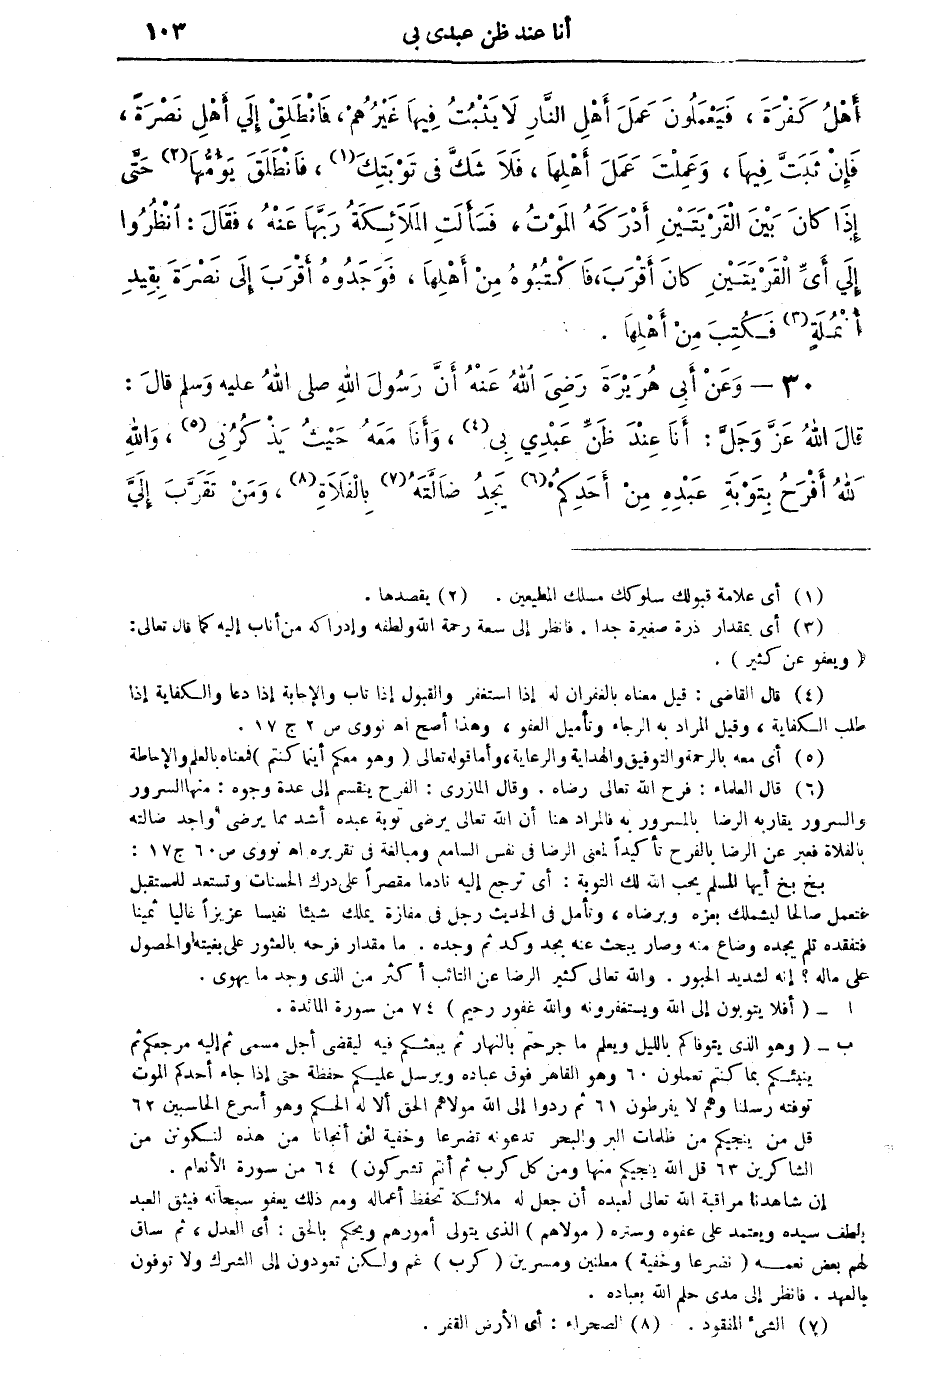 أنا عند ظن عبدى بى ١٠٣
أَهْلُ كَفْرَةَ ، فَيَعْمَلُونَ عَمَلَ أَهْلِ النَّارِ لَا يَثْبُتُ فِيهَا غَيْرُهُمْ، فَانْطَلِقْ إِلَي أَهْلِ نَصْرَةَ ،
فَإِنْ ثَبَتَّ فِيهَا ، وَعَمِلْتَ عَمَلَ أَهْلِهَا ، فَلَا شَكَّ فى تَوْبَتِكَ(١) ، فَانْطَلَقَ يَؤُمُّهَا(٢) حَتَّى
إِذَا كانَ بَيْنَ الْقَرْيَتَيْنِ أَدْرَكَهُ الْمَوْتُ ، فَسَأَلَتِ الْمَلَائِكَةُ رَبَّهَا عَنْهُ ، فَقَالَ : انْظُرُوا
إِلَي أَىِّ الْقَرْيَتَيْنِ كانَ أَقْرَبَ، فَاكْتُبُوهُ مِنْ أَهْلِهَا ، فَوَجَدُوهُ أَقْرَبَ إِلَى نَصْرَةَ بِقِيدِ
أَنْمُلَةٍ(٣) فَكُتِبَ مِنْ أَهْلِهَا .
٣٠ — وَعَنْ أَبِي هُرَيْرَةَ رَضِىَ اللهُ عَنْهُ أَنَّ رَسُولَ اللهِ صلى اللهُ عليه وَسلم قالَ :
قالَ اللهُ عَزَّ وَجَلَّ : أَنَا عِنْدَ ظَنِّ عَبْدِي بِى(٤) ، وَأَنَا مَعَهُ حَيْثُ يَذْكُرُنِى(٥) ، وَاللهِ
لَلّٰهُ أَفْرَحُ بِتَوْبَةِ عَبْدِهِ مِنْ أَحَدِكُمْ(٦) يَجِدُ ضَالَّتَهُ(٧) بِالْفَلَاةِ(٨) ، وَمَنْ تَقَرَّبَ إِلَيَّ
(١) أى علامة قبولك سلوكك مسلك المطيعين . (٢) يقصدها .
(٣) أى بمقدار ذرة صغيرة جدا . فانظر إلى سعة رحمة الله ولطفه وإدراكه من أناب إليه كما قال تعالى:
( ويعفو عن كثير ) .
(٤) قال القاضى : قيل معناه بالغفران له إذا استغفر والقبول إذا تاب والإجابة إذا دعا والكفاية إذا
طلب الكفاية ، وقيل المراد به الرجاء وتأميل العفو ، وهذا أصح اه نووى ص ٢ ج ١٧ .
(٥) أى معه بالرحمة والتوفيق والهداية والرعاية، وأما قوله تعالى ( وهو معكم أينما كنتم ) فمعناه بالعلم والإحاطة
(٦) قال العلماء : فرح الله تعالى رضاه . وقال المازرى : الفرح ينقسم إلى عدة وجوه : منها السرور
والسرور يقاربه الرضا بالمسرور به فالمراد هنا أن الله تعالى يرضى توبة عبده أشد مما يرضى واجد ضالته
بالفلاة فعبر عن الرضا بالفرح تأكيداً لمعنى الرضا فى نفس السامع ومبالغة فى تقريره اه نووى ص ٦٠ ج ١٧ :
بخ بخ أيها المسلم يحب الله لك التوبة : أى ترجع إليه نادما مقصراً على درك الحسنات وتستعد للمستقبل
فتعمل صالحا ليشملك بعزه وبرضاه ، وتأمل فى الحديث رجل فى مفازة يملك شيئا نفيسا عزيزاً غاليا ثمينا
فتفقده فلم يجده وضاع منه وصار يبحث عنه بجد وكد ثم وجده . ما مقدار فرحه بالعثور على بغيته والحصول
على ماله ؟ إنه لشديد الحبور . والله تعالى كثير الرضا عن التائب أكثر من الذى وجد ما يهوى .
ا — ( أفلا يتوبون إلى الله ويستغفرونه والله غفور رحيم ) ٧٤ من سورة المائدة .
ب — ( وهو الذى يتوفاكم بالليل ويعلم ما جرحتم بالنهار ثم يبعثكم فيه ليقضى أجل مسمى ثم إليه مرجعكم ثم
ينبئكم بما كنتم تعملون ٦٠ وهو القاهر فوق عباده ويرسل عليكم حفظة حتى إذا جاء أحدكم الموت
توفته رسلنا وهم لا يفرطون ٦١ ثم ردوا إلى الله مولاهم الحق ألا له الحكم وهو أسرع الحاسبين ٦٢
قل من ينجيكم من ظلمات البر والبحر تدعونه تضرعا وخفية لئن أنجانا من هذه لنكونن من
الشاكرين ٦٣ قل الله ينجيكم منها ومن كل كرب ثم أنتم تشركون ) ٦٤ من سورة الأنعام .
إن شاهدنا مراقبة الله تعالى لعبده أن جعل له ملائكة تحفظ أعماله ومع ذلك يعفو سبحانه فيثق العبد
بلطف سيده ويعتمد على عفوه وستره ( مولاهم ) الذى يتولى أمورهم ويحكم بالحق : أى العدل ، ثم ساق
لهم بعض نعمه ( تضرعا وخفية ) معلنين ومسرين ( كرب ) غم ولكن تعودون إلى الشرك ولا توفون
بالعهد . فانظر إلى مدى حلم الله بعباده .
(٧) الشىء المنقود . (٨) الصحراء : أى الأرض القفر .